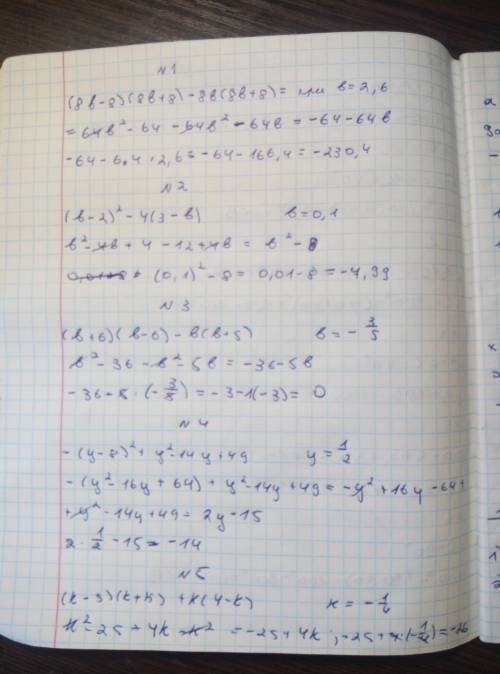 N1
(8в-8)(8в+8)-8в(8в+8)= при в=2,6
=64в²-64-64в²-64в=-64-64в
-64-6,4·2,6=-64-166,4=-230,4
N2
(в-2)²-4(3-в) в=0,1
в²-4в+4-12+4в=в²-8
(0,1)²-8=0,01-8=-7,99
N3
(в+6)(в-6)-в(в+5) в=-3/5
в²-36-в²-5в=-36-5в
-36-5·(-3/5)=-3-1(-3)=0
N4
-(y-8)²+y²-14y+49 y=1/2
-(y²-16y+64)+y²-14y+49=-y²+16y-64+
+y²-14y+49=2y-15
2·1/2-15=-14
N5
(к-5)(к+5)+к(4-к) к=-1/4
к²-25+4к-к²=-25+4к; -25+4·(-1/4)=-26